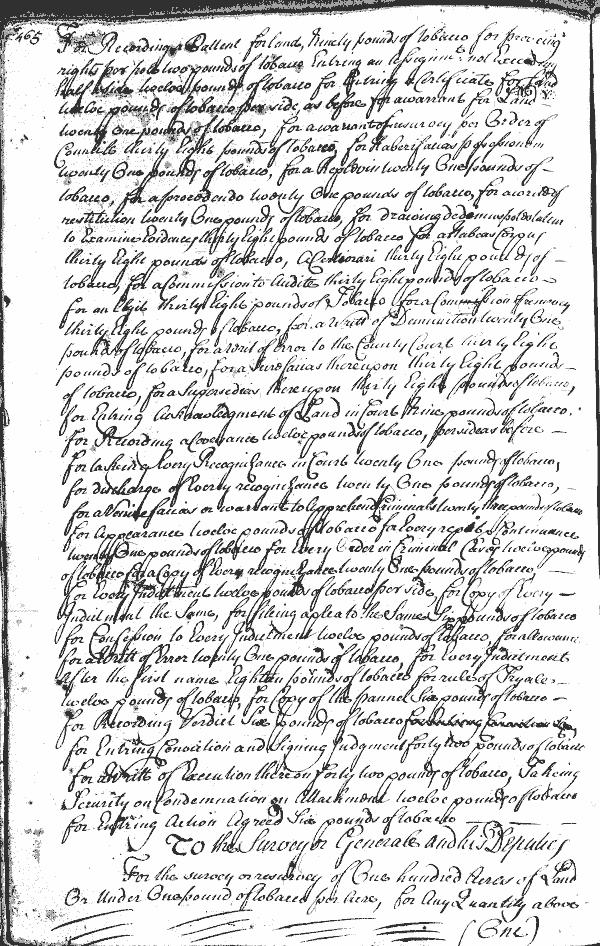 465
For Recording a Pattent for land, Ninety pounds of tobacco for proveing
rights per pole two pounds of tobacco Entring an assignmt. not Exceeding
half a side twelve pounds of tobacco for Entring a Certificate for Land
twelve pounds of tobacco per side, as before for a warrant for Land
twenty One pounds of tobacco, for a warrant of resurvey per Order of
Councill thirty Eight pounds of tobacco, for Haberi facias possessionem
twenty One pounds of tobacco, for a Replevin twenty One pounds of
tobacco, for a procedendo twenty One pounds of tobacco, for a writt of
restitution twenty One pounds of tobacco, for drawing dedimus potestatem
to Examine Evidences thirty Eight pounds of tobacco for a Habeas Corpus
thirty Eight pounds of tobacco, a Certiorari thirty Eight pounds of
tobacco, for a Commission to Audite thirty Eight pounds of tobacco
for an Elegit thirty Eight pounds of Tobacco for a Commission of resurvey
thirty Eight pounds of tobacco, for a Writt of Diminution twenty One
pounds of tobacco, for a Writ of Error to the County Court thirty Eight
pounds of tobacco, for a Scire facias thereupon thirty Eight pounds
of tobacco, for a Supersedias thereupon thirty Eight pounds of tobacco,
for Entring Acknowledgment of Land in Court Nine pounds of tobacco.
for Recording a Conveyance twelve pounds of tobacco, per side as before
for taking Every Recognizance in Court twenty One pounds of tobacco,
for discharge of Every recognizance twenty One pounds of tobacco,
for a Venire facias or warrant to Apprehend Criminals twenty three pounds of tobacco
for Appearance twelve pounds of tobacco for Every Continuance
twenty One pounds of tobacco for Every Order in Criminal Cases twelve pounds
of tobacco for a Copy of Every recognizance twenty One pounds of tobacco
for Every Indictment twelve pounds of tobacco per side, for Copy of Every
Indictment the Same, for fileing a plea to the Same Six pounds of tobacco
for Confession to Every Indictment twelve pounds of tobacco, for allowance
for a Writt of Error twenty One pounds of tobacco, for Every Indictment
after the first name Eighteen pounds of tobacco for rule of Tryale
twelve pounds of tobacco, for Copy of the pannel Six pounds of tobacco
for Recording Verdict Six pounds of tobacco
for Entring Conviction and Signing Judgment forty two pounds of tobacco
for a Writt of Execution thereon forty two pounds of tobacco, Takeing
Security on Condemnation on Attachment twelve pounds of tobacco
for Entring Action Agreed Six pounds of tobacco
To the Surveyor Generale and his Deputies
For the survey or resurvey of One hundred Acres of Land
Or Under One pound of tobacco per Acre, for Any Quantity above
(One)